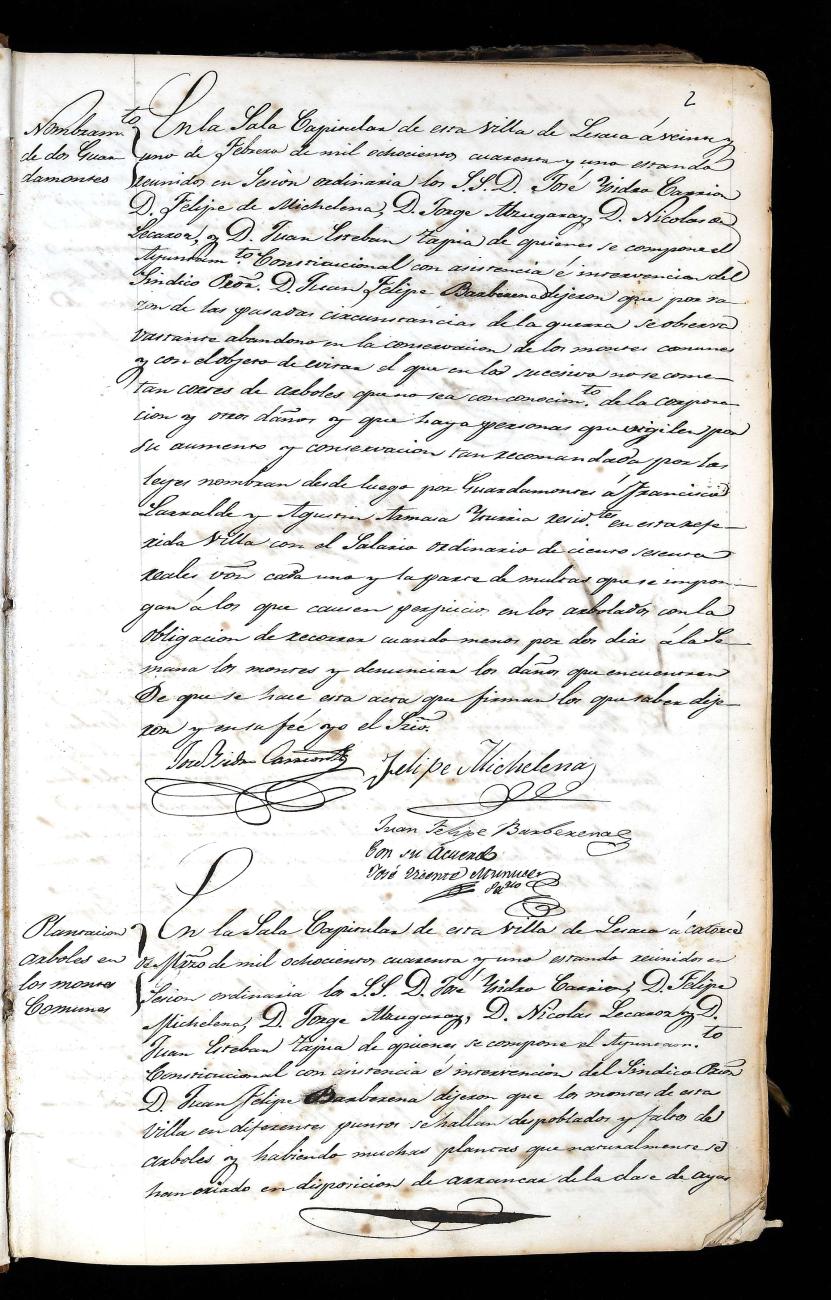 2
Nombram.to
de dos Guar
damontes
En la Sala Capitular de esta Villa de Lesaca á veinte y
uno de Febrero de mil ochocientos cuarenta y uno estando
reunidos en Sesion ordinaria los S.S. D. José Ysidro Carrion
D. Felipe de Michelena, D. Jorge Mrugaray, D. Nicolas de
Lecaroz, y D. Juan Esteban Tapia de quienes se compone el
Ayuntam.to Constitucional con asistencia é intervencion del
Sindico Pror. D. Juan Felipe Barberena dijeron que por ra-
zon de las pasadas circunstancias de la guerra se observa
vastante abandono en la conservacion de los montes comunes
y con el objeto de evitar el que en los sucesivo no se come-
tan cortes de arboles que no sea con conocim.to de la corpora-
cion y otros daños y que haya personas que vigilen por
su aumento y conservacion tan recomendada por las
leyes nombran desde luego por Guardamontes á Francisco
Larralde y Agustin Armasa Yturria resid.tes en esta refe-
rida Villa con el Salario ordinario de ciento sesenta
reales von cada uno y la parte de multas que se impon-
gan á los que causen perjuicios en los arbolados con la
obligacion de recorrer cuando menos por dos dias á la Se-
mana los montes y denunciar los daños que encuentren
De que se hace esta acta que firman los que saber dije-
ron y en su fée yo el Srio.
José Ysidro Carrion
Felipe Michelena
Juan Felipe Barberena
Con su Acuerdo
José Vicente
Srio
Plantacion
arboles en
los montes
Comunes
En la Sala Capitular de esta Villa de Lesaca á catorce
de Mrzo de mil ochocientos cuarenta y uno estando reunidos en
Sesion ordinaria los S.S. D. José Ysidro Carrion, D. Felipe
Michelena, D. Jorge Mrugaray, D. Nicolas Lecaroz y D.
Juan Esteban Tapia de quienes se compone el Ayuntam.to
Constitucional con asistencia é intervencion del Sindico Pror
D. Juan Felipe Barberena dijeron que los montes de esta
Villa en diferentes puntos se hallan despoblados y faltos de
arboles y habiendo muchas plantas que naturalmente se
han criado en disposicion de arrancar de la clase de ayas